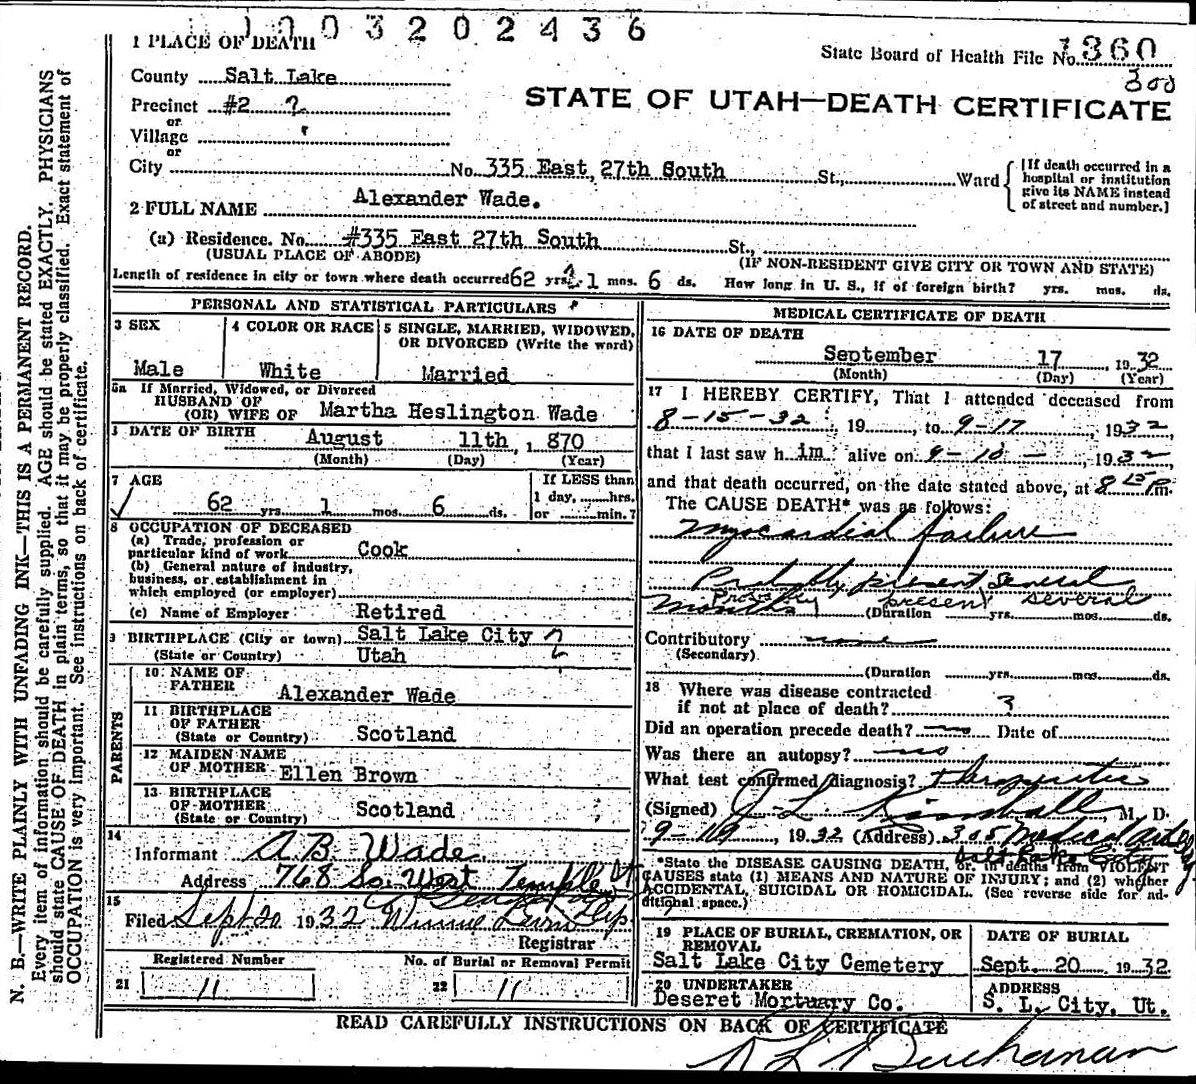 1003202436
1 PLACE OF DEATH
State Board of Health File No. 1360
300
County Salt Lake
STATE OF UTAH—DEATH CERTIFICATE
Precinct #2 ?
or
Village
or
City No. 335 East, 27th South St., Ward
[If death occurred in a
hospital or institution
give its NAME instead
of street and number.]
2 FULL NAME Alexander Wade.
(a) Residence. No. #335 East 27th South St.,
(USUAL PLACE OF ABODE) (IF NON-RESIDENT GIVE CITY OR TOWN AND STATE)
Length of residence in city or town where death occurred 62 yrs. 1 mos. 6 ds. How long in U. S., if of foreign birth? yrs. mos. ds.
PERSONAL AND STATISTICAL PARTICULARS
3 SEX
Male
4 COLOR OR RACE
White
5 SINGLE, MARRIED, WIDOWED,
OR DIVORCED (Write the word)
Married
5a If Married, Widowed, or Divorced
HUSBAND OF
(OR) WIFE OF Martha Heslington Wade
DATE OF BIRTH August 11th, 1870
(Month) (Day) (Year)
7 AGE
62 yrs. 1 mos. 6 ds.
If LESS than
1 day, hrs.
or min.?
8 OCCUPATION OF DECEASED
(a) Trade, profession or
particular kind of work Cook
(b) General nature of industry,
business, or establishment in
which employed (or employer)
(c) Name of Employer Retired
9 BIRTHPLACE (City or town) Salt Lake City ?
(State or Country) Utah
PARENTS
10 NAME OF
FATHER Alexander Wade
11 BIRTHPLACE
OF FATHER
(State or Country) Scotland
12 MAIDEN NAME
OF MOTHER Ellen Brown
13 BIRTHPLACE
OF MOTHER
(State or Country) Scotland
14
Informant A B Wade
Address 768 So. West Temple St
15
Filed Sept 20 1932 Winnie Dep.
Registrar
Registered Number No. of Burial or Removal Permit
21 11 22 11
MEDICAL CERTIFICATE OF DEATH
16 DATE OF DEATH
September 17, 1932
(Month) (Day) (Year)
17 I HEREBY CERTIFY, That I attended deceased from
8-15-32, 19, to 9-17, 1932,
that I last saw h im alive on 9-10-, 1932,
and that death occurred, on the date stated above, at 8 15 P.m.
The CAUSE DEATH* was as follows:
Myocardial failure
Probably present several
Probably present several
months (Duration yrs. mos. ds.
Contributory none
(Secondary)
(Duration yrs. mos. ds.
18 Where was disease contracted
if not at place of death? ?
Did an operation precede death? no Date of
Was there an autopsy? no
What test confirmed diagnosis? therapeutics
(Signed) J L Kimball, M. D.
9-19, 1932 (Address) 305 Medical Arts Bldg
Salt Lake City
*State the DISEASE CAUSING DEATH, or in deaths from VIOLENT
CAUSES state (1) MEANS AND NATURE OF INJURY; and (2) whether
ACCIDENTAL, SUICIDAL OR HOMICIDAL. (See reverse side for ad-
ditional space.)
19 PLACE OF BURIAL, CREMATION, OR
REMOVAL
Salt Lake City Cemetery
DATE OF BURIAL
Sept. 20 1932
20 UNDERTAKER
Deseret Mortuary Co.
ADDRESS
S. L. City, Ut.
READ CAREFULLY INSTRUCTIONS ON BACK OF CERTIFICATE
Buchanan
N. B.—WRITE PLAINLY WITH UNFADING INK—THIS IS A PERMANENT RECORD.
Every item of information should be carefully supplied. AGE should be stated EXACTLY. PHYSICIANS
should state CAUSE OF DEATH in plain terms, so that it may be properly classified. Exact statement of
OCCUPATION is very important. See instructions on back of certificate.